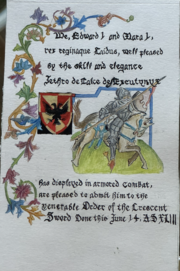 We, Edward I. and Mara I.
rex reginaque Caidus, well pleased
by the skill and elegance
Jethro de
has displayed in armored combat,
are pleased to admit him to the
Venerable Order of the Crescent
Sword Done this June 14. AS XLIII